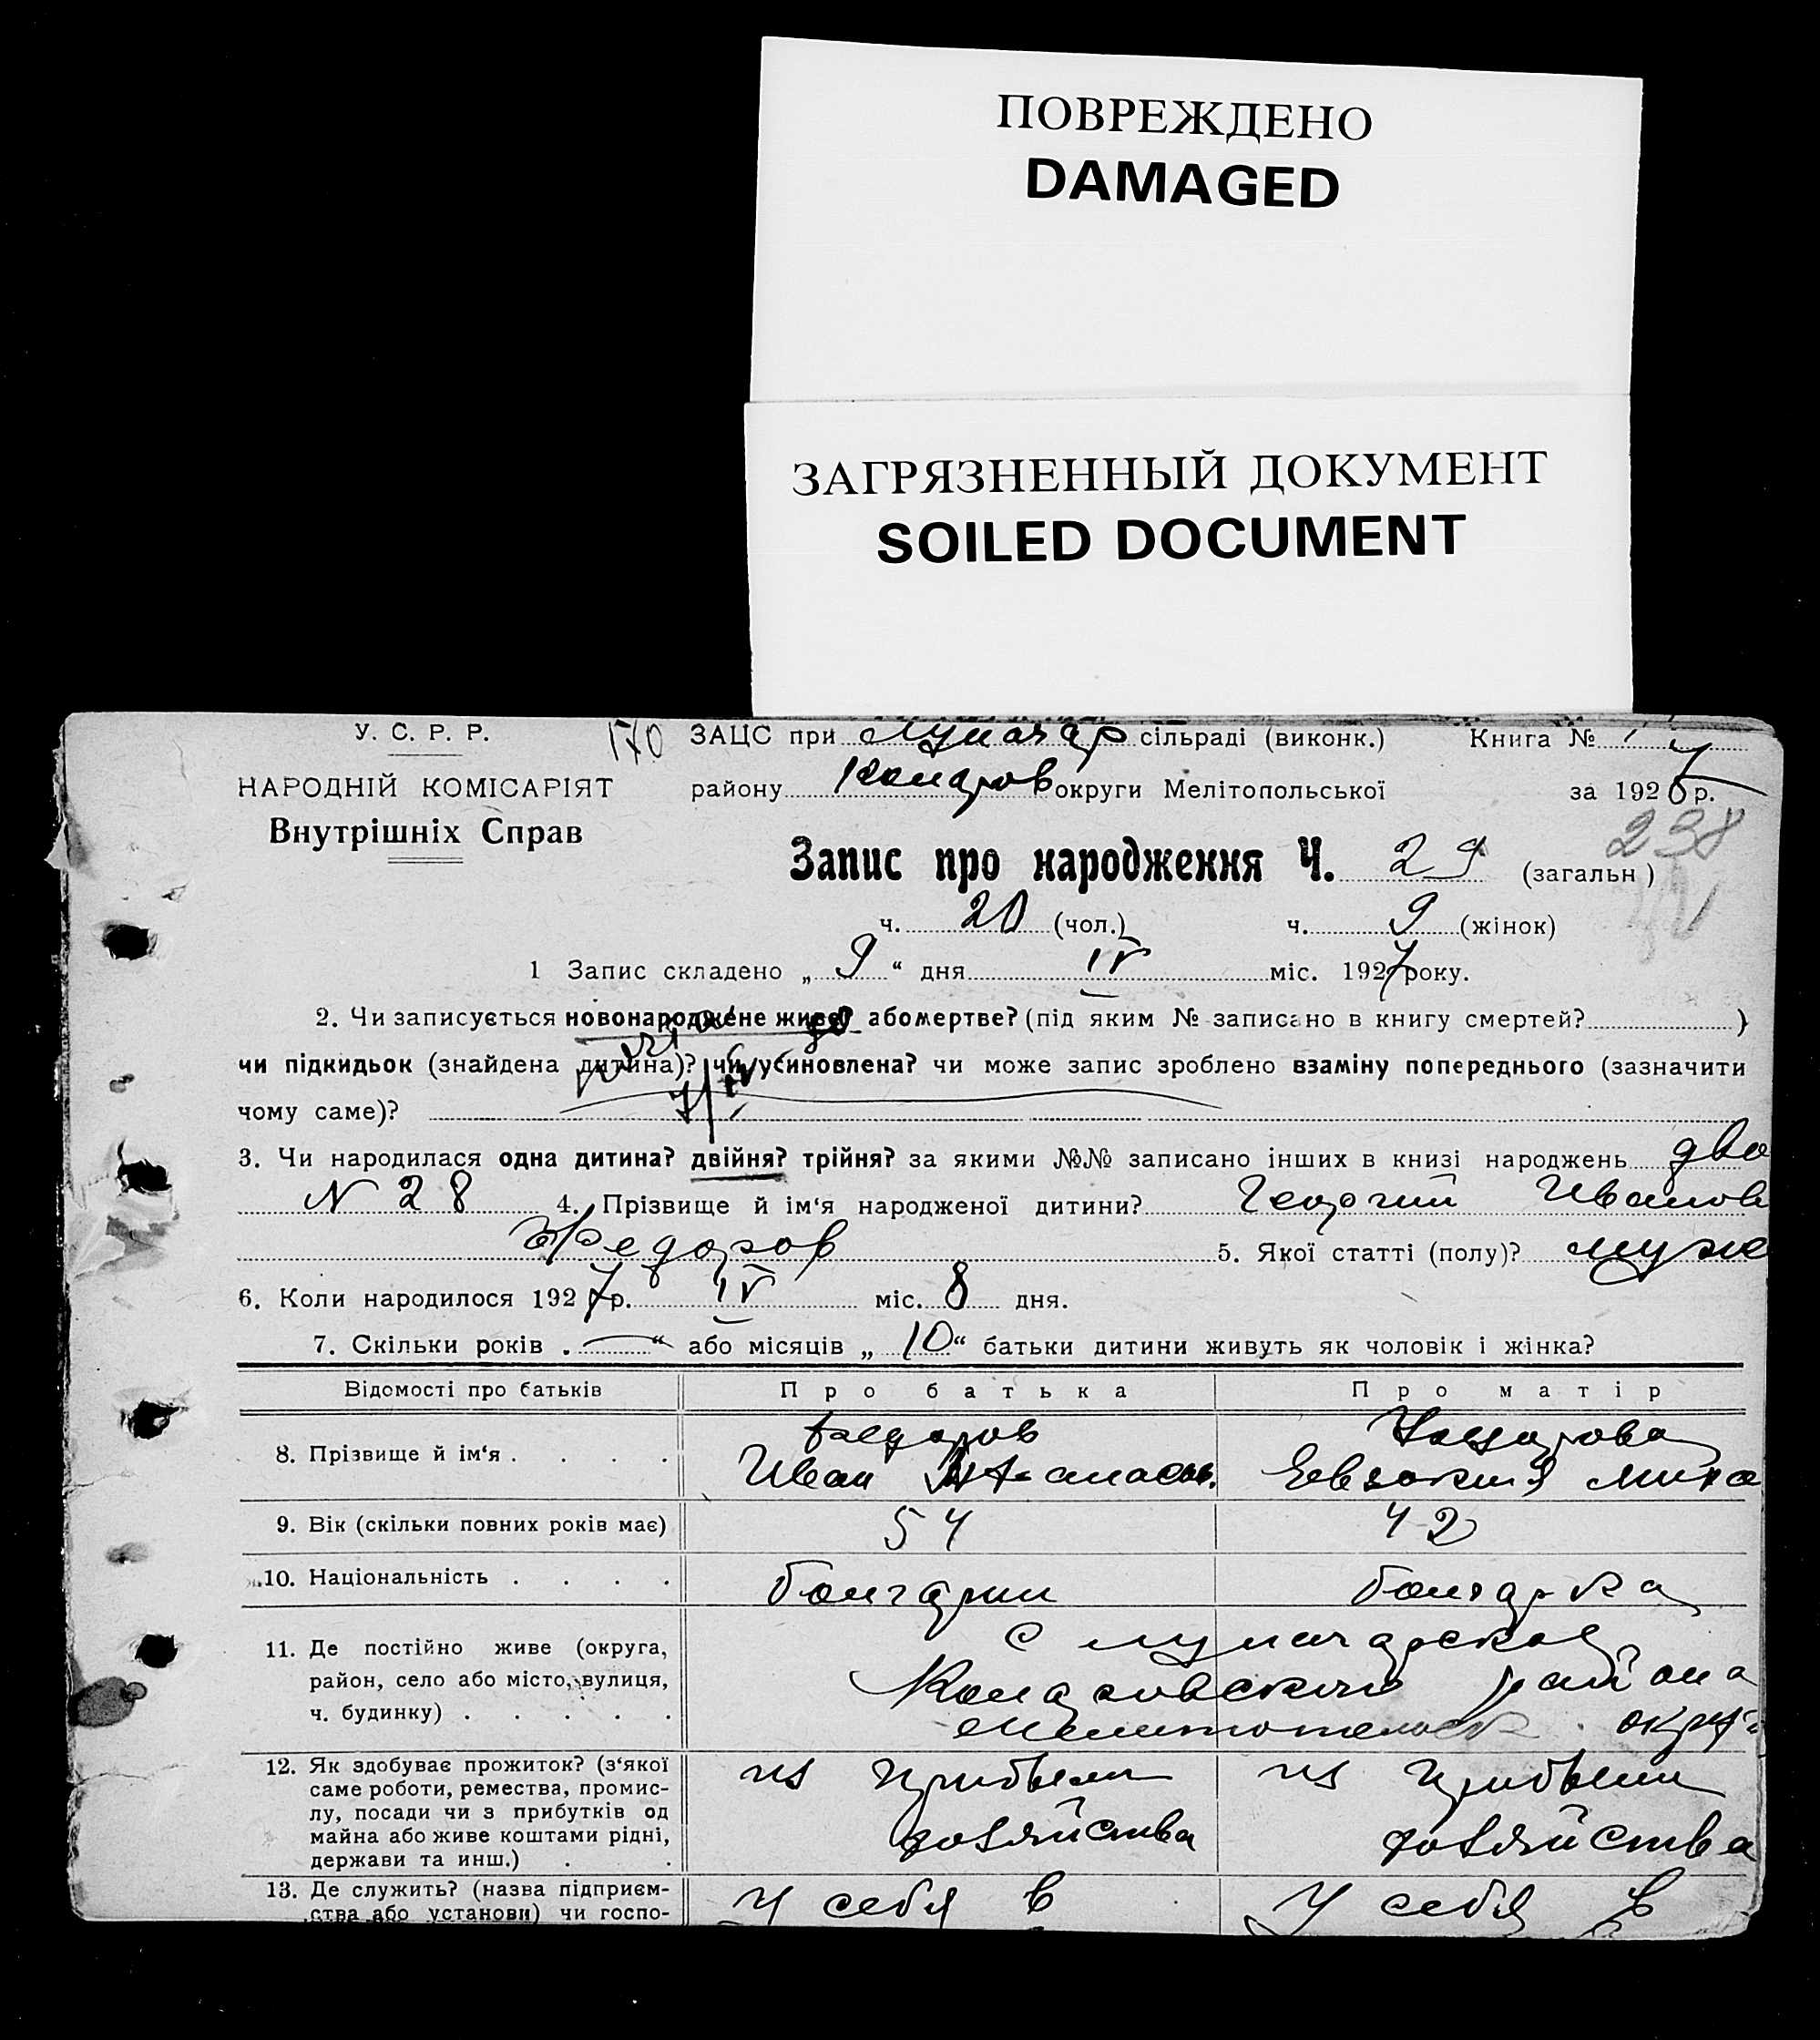 ПОВРЕЖДЕНО
DAMAGED
ЗАГРЯЗНЕННЫЙ ДОКУМЕНТ
SOILED DOCUMENT
У. С. Р. Р. 170 ЗАЦС при Луначар сільраді (виконк.) Книга №
НАРОДНІЙ КОМІСАРІЯТ району округи Мелітопольської за 192 р.
Внутрішніх Справ
238
Запис про народження Ч. 29 (загальн)
ч. 20 (чол.) ч. 9 (жінок)
1 Запис складено „ 9 “ дня IV міс. 1927 року.
2. Чи записується новонароджене живе? або мертве? (під яким № записано в книгу смертей? )
чи підкидьок (знайдена дитина)? чи усиновлена? чи може запис зроблено взаміну попереднього (зазначити
чому саме)?
3. Чи народилася одна дитина? двійня? трійня? за якими №№ записано інших в книзі народжень два
N 28 4. Прізвище й ім‘я народженої дитини? Георгий Иванов
Федоров 5. Якої статті (полу)? муж
6. Коли народилося 1927 р. IV міс. 8 дня.
7. Скільки років . — “ або місяців „ 10 “ батьки дитини живуть як чоловік і жінка?
Відомості про батьків Про батька Про матір
8. Прізвище й ім‘я . . . . Федоров
Иван Евдокия
9. Вік (скільки повних років має) 54 42
10. Національність . . . . болгарин болгарка
11. Де постійно живе (округа, с Луначарское
район, село або місто, вулиця, района
ч. будинку) . . . . . Мелитопольск. окру
12. Як здобуває прожиток? (з‘якої из прибыли из прибыли
саме роботи, ремества, промис-
лу, посади чи з прибутків од хозяйства хозяйства
майна або живе коштами рідні,
держави та инш.) . .
13. Де служить? (назва підприєм- У себя в У себя в
ства або установи) чи госпо-